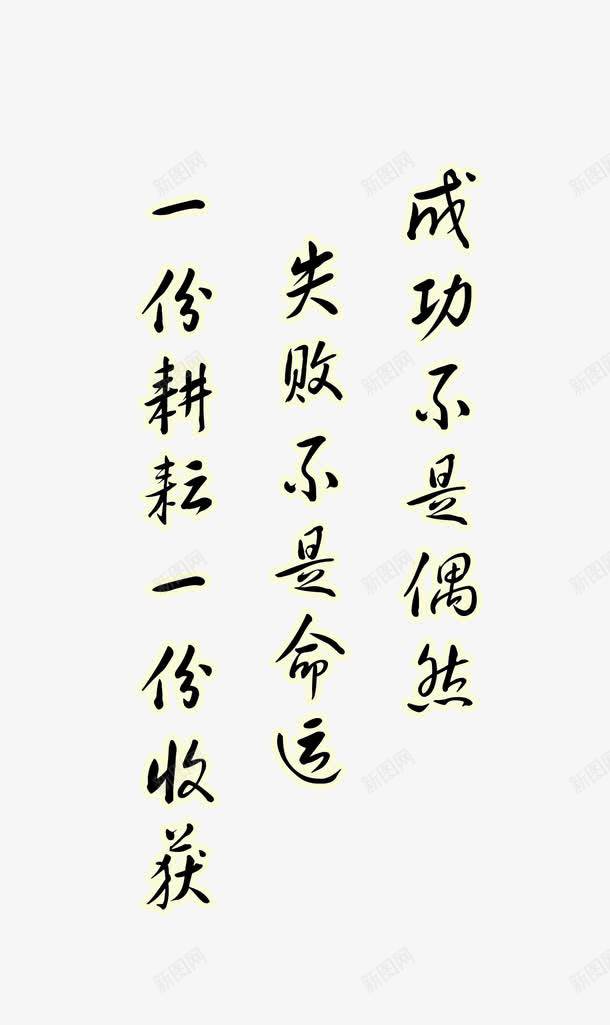 成功不是偶然
失败不是命运
一份耕耘一份收获
新图网